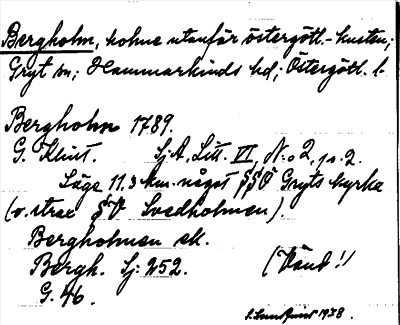 Bergholm, holme utanför östergötl.-kusten;
Gryt sn; Hammarkinds hd; Östergötl. l.
Bergholm 1789.
G. Klint. Sj.A. Litt. VI, N:o 2, p. 2.
Läge 11.3 km. något §§Ö Gryts kyrka
(o. strax §V Svedholmen).
Bergholmen ek.
Bergh. Sj: 252.
(Vänd!)
G. 46.
1928.